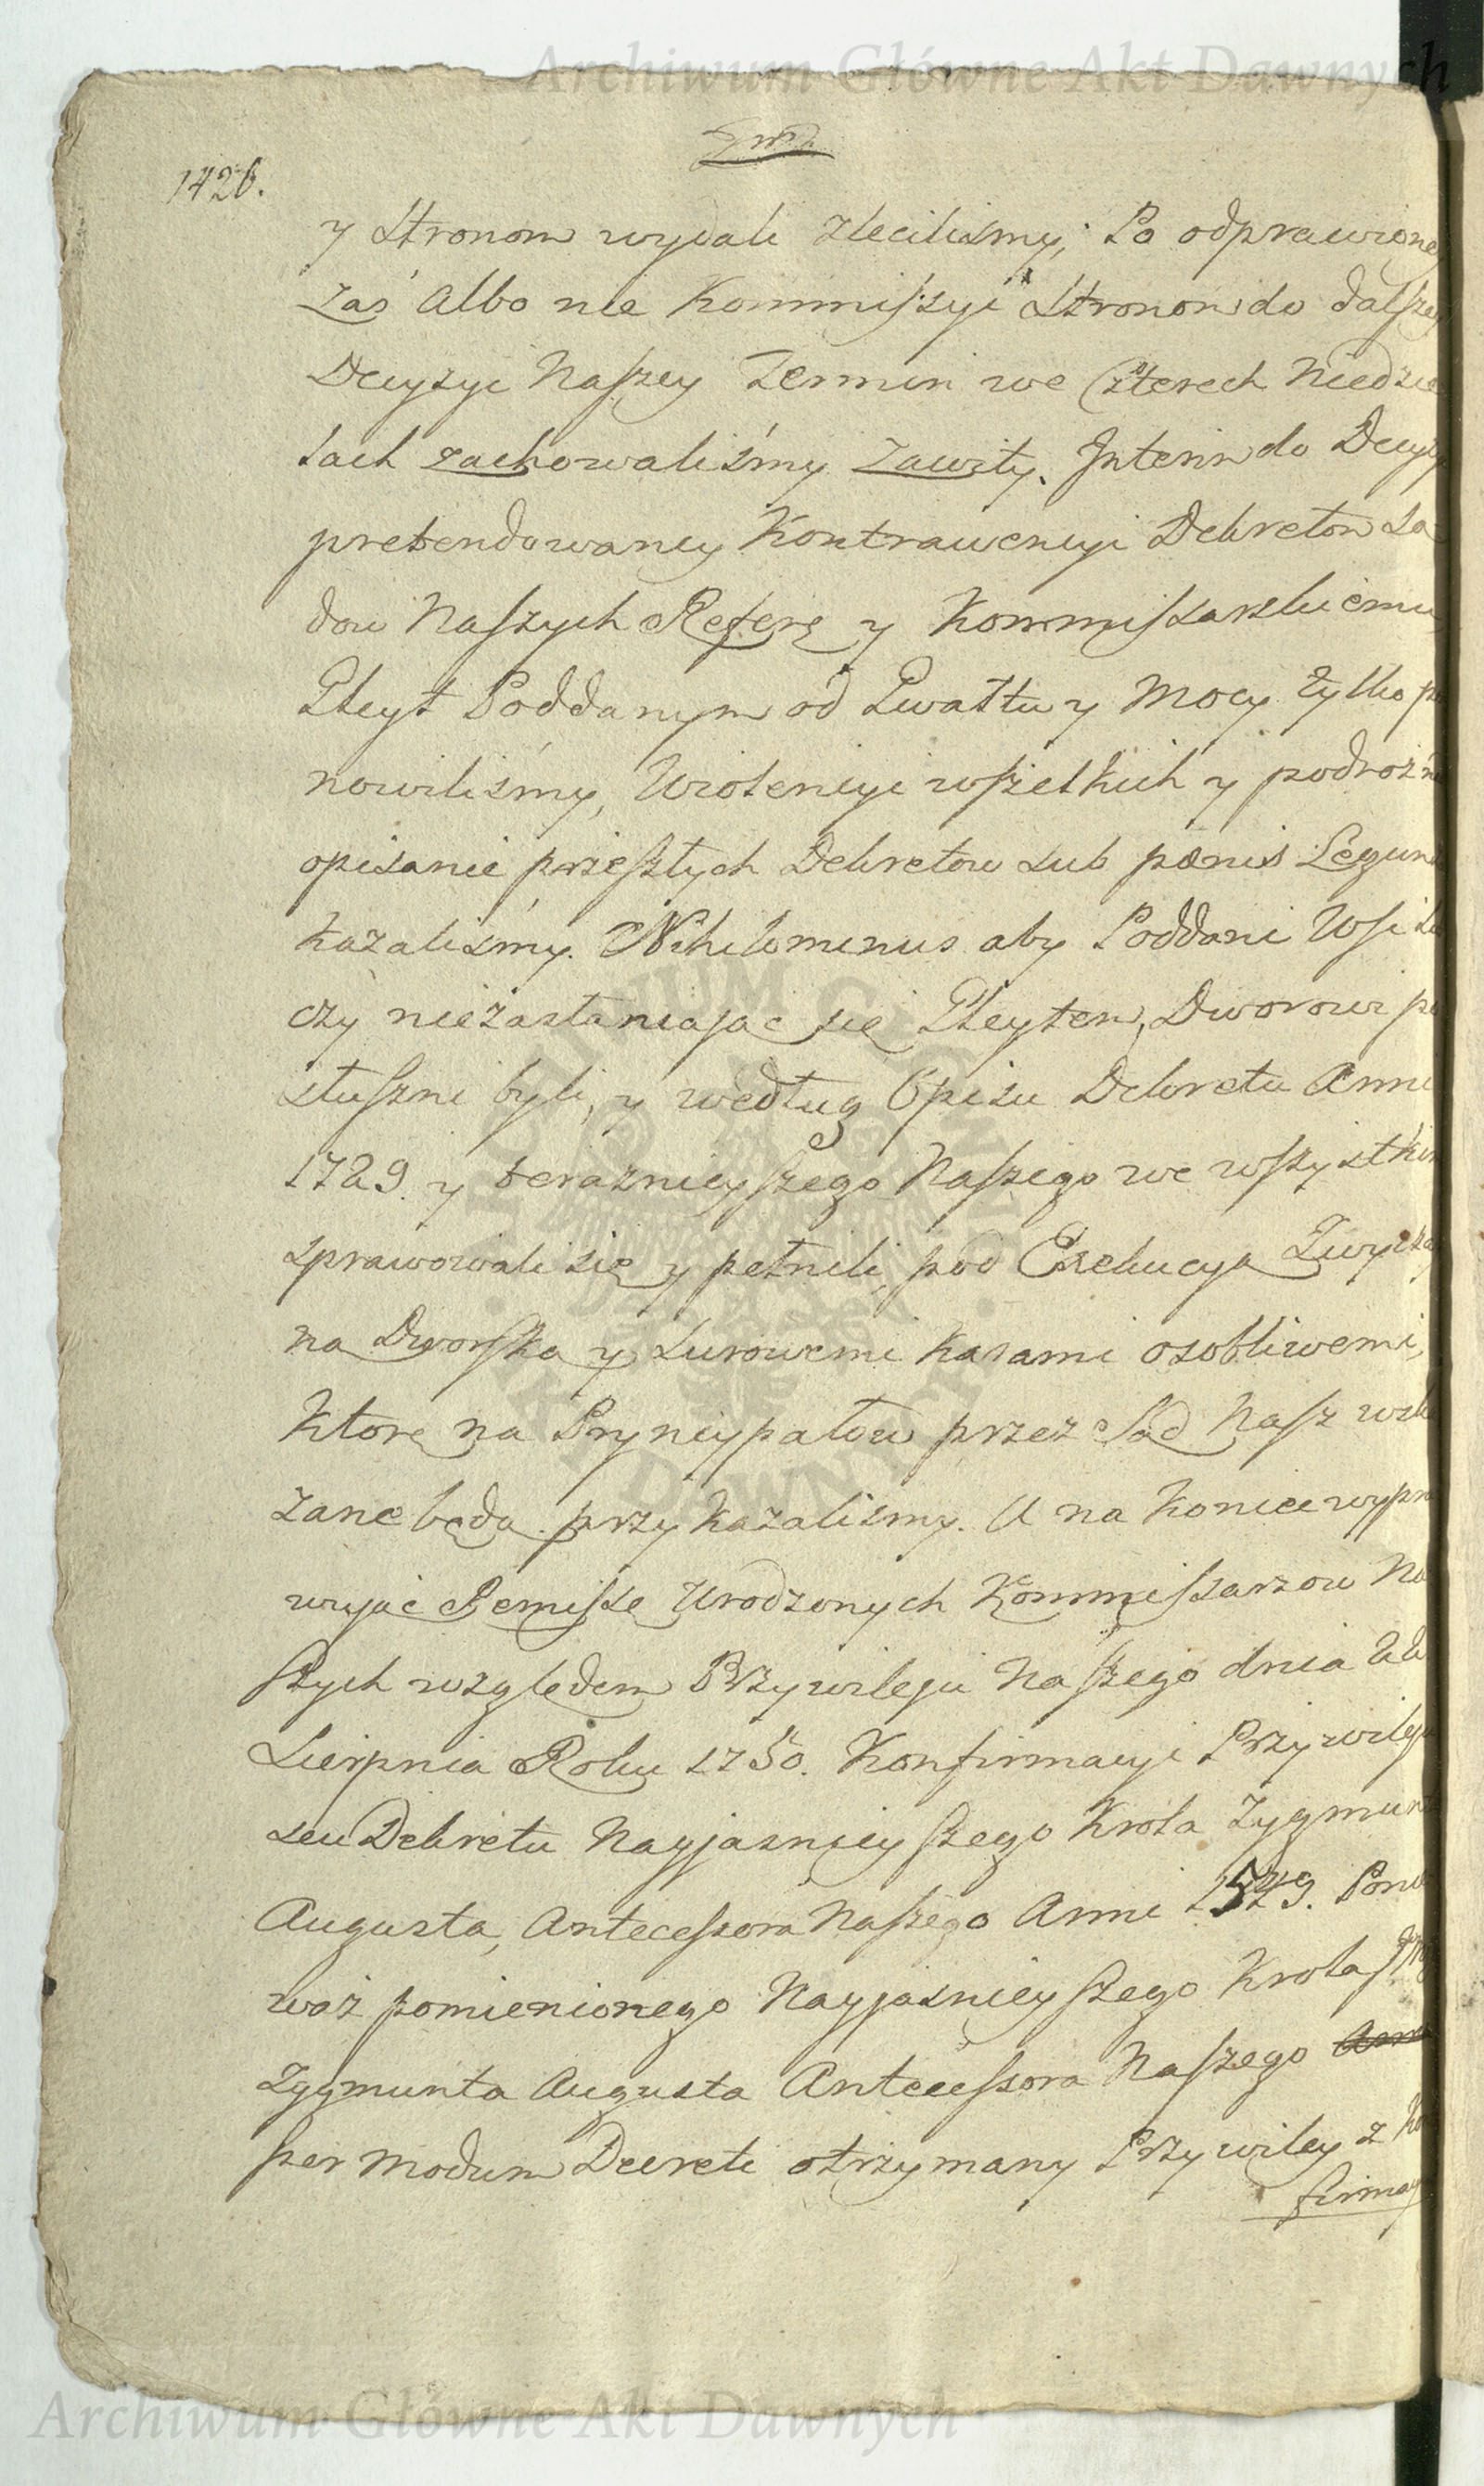 Archiwum Główne Akt Dawnych
1426.
y Stronom wydali zleciliśmy; Po odprawione
zaś albo nie Kommiſsyi Stronom do dalſzey
Decyzyi Naſzey Termin we Czterech Niedzie
lach zachowaliśmy zawity. Interim do Decyzy
pretendowaney Kontrawencyi Dekretow Są
dow Naſzych Refer: y Kommiſsarskiemu
Gleyt Poddanym od Gwałtu y Mocy tylko po
nowiliśmy, Wiolencyi wſzelkich y podroż
opisanie przeſzłych Dekretow sub pœnis Legum
kazaliśmy. Nihilominus aby Poddani Wsi
czy niezastaniając się Gleytem, Dworowi po
słuſzni byli, y według Opisu Dekretu Anni
1729. y teraznieyſzego Naſzego we wſzystkim
sprawowali się y pełnili, pod Exekucyą Zwycza
na Dworſką y surowemi karami osobliwemi,
ktore na Pryncypałow przez Sąd Naſz wska
zane będą przykazaliśmy. A na koniec wypra
wując Remiſsę Urodzonych Kommiſsarzow Na
ſzych względem Przywileju Naſzego dnia
Sierpnia Roku 1750. Konfirmacyi Przywileju
seu Dekretu Nayjasnieyſzego Krola Zygmunta
Augusta, Anteceſsora Naſzego Anni 1549. Ponie
waż pomienionego Nayjasnieyſzego Krola
Zygmunta Augusta Anteceſsora Naſzego Anni
per modum Decreti otrzymany Przywiley z Ko
firmacy
ARCHIWUM GŁÓWNE AKT DAWNYCH
Archiwum Główne Akt Dawnych